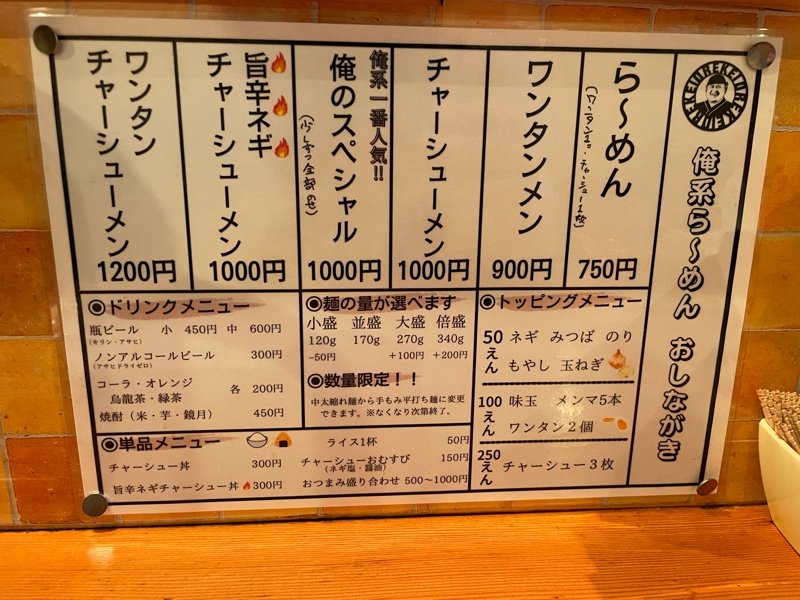 俺系ら〜めん おしながき
ら〜めん
750円
ワンタンメン
900円
チャーシューメン
1000円
俺系一番人気!!
俺のスペシャル
(少しずつ全部のせ)
1000円
旨辛ネギ
チャーシューメン
1000円
ワンタン
チャーシューメン
1200円
◉トッピングメニュー
50えん ネギ みつば のり
もやし 玉ねぎ
100えん 味玉 メンマ5本
ワンタン2個
250えん チャーシュー3枚
◉麺の量が選べます
小盛 並盛 大盛 倍盛
120g 170g 270g 340g
-50円 +100円 +200円
◉数量限定!!
中太縮れ麺から手もみ平打ち麺に変更
できます。※なくなり次第終了。
◉ドリンクメニュー
瓶ビール 小 450円 中 600円
(キリン・アサヒ)
ノンアルコールビール 300円
(アサヒドライゼロ)
コーラ・オレンジ
烏龍茶・緑茶 各 200円
焼酎(米・芋・鏡月) 450円
◉単品メニュー
チャーシュー丼 300円
旨辛ネギチャーシュー丼 300円
ライス1杯 50円
チャーシューおむすび 150円
(ネギ塩・醤油)
おつまみ盛り合わせ 500〜1000円